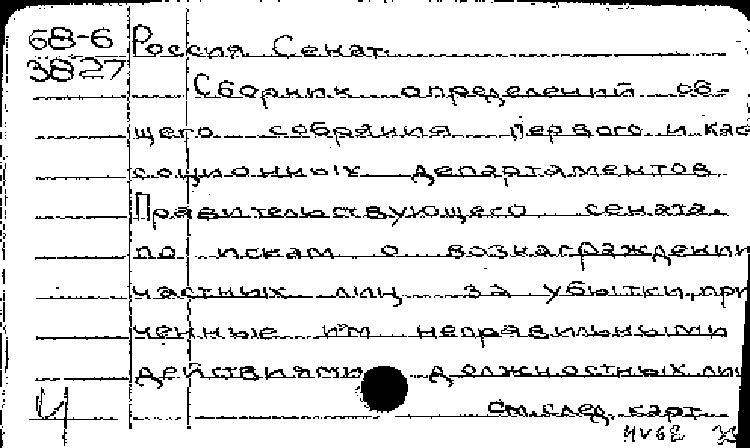 68-6 Россия. Сенат.
3827
Сборник определений об-
щего собрания первого и кас
сационных департаментов
Правительствующего сената.
по искам о вознаграждении
частных лиц за убытки, при
ченные им неправильными
действиями должностных ли
см. след. карт.